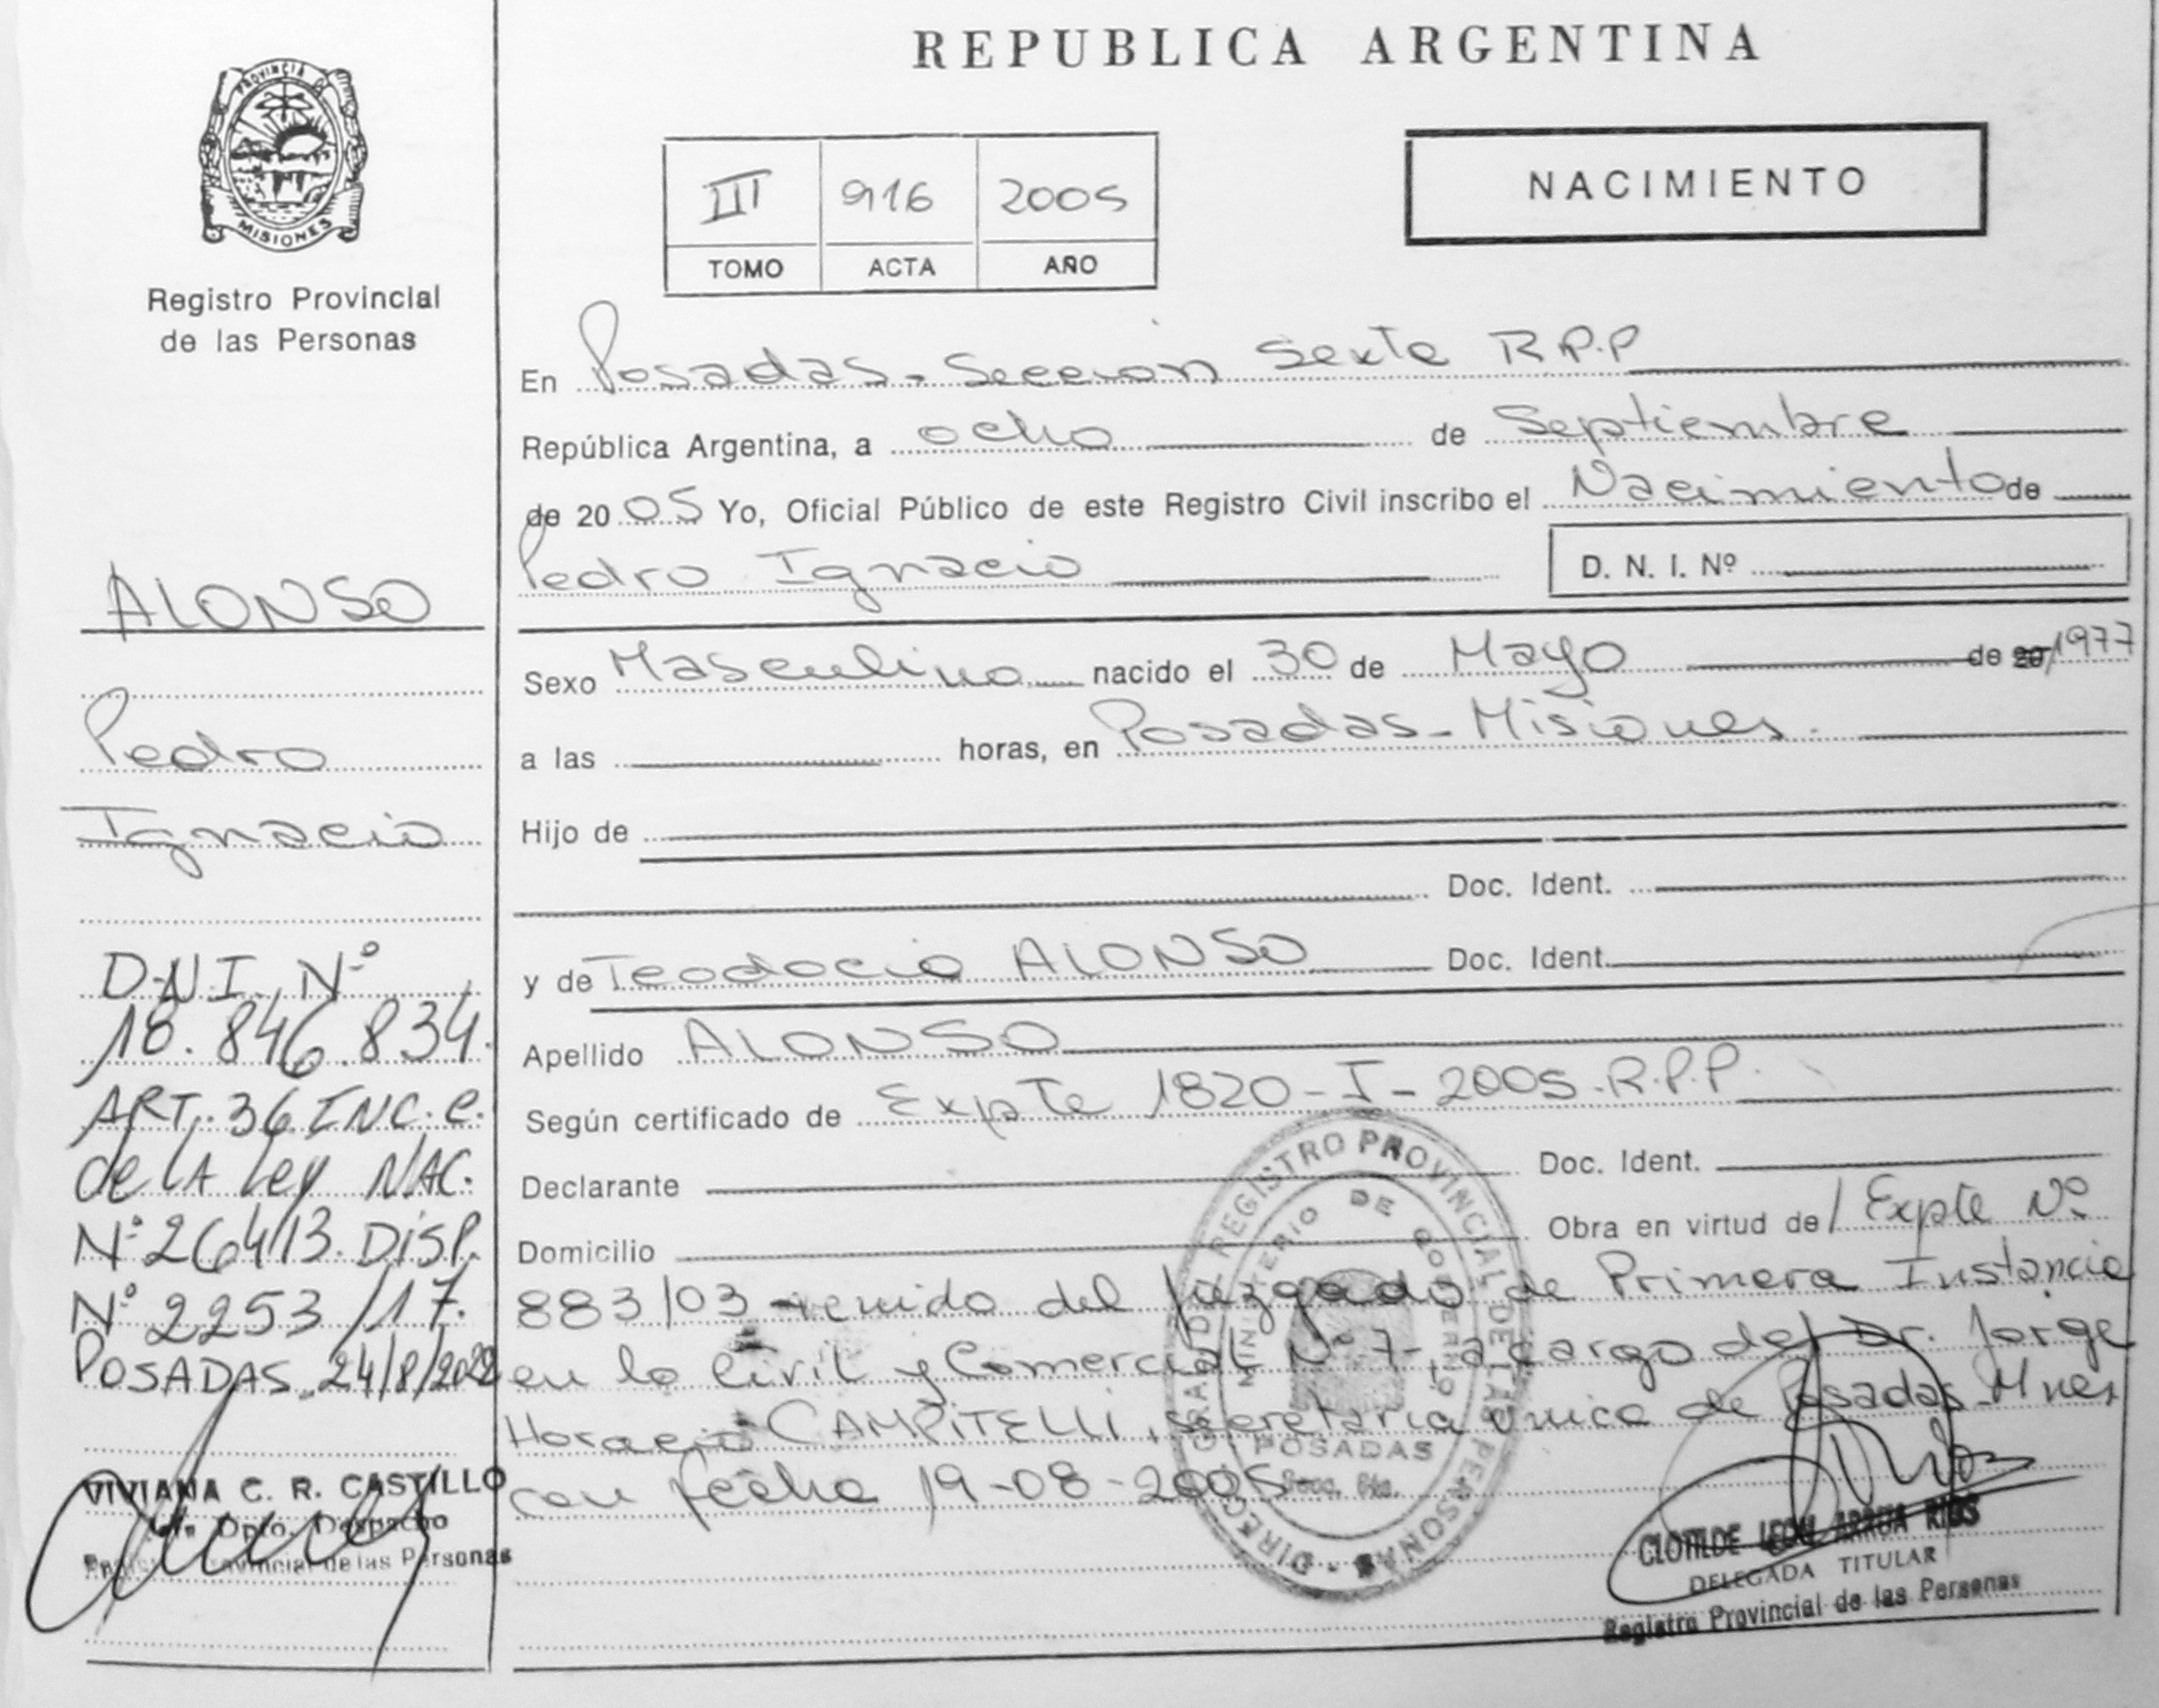 REPUBLICA ARGENTINA
PROVINCIA DE
MISIONES
Registro Provincial
de las Personas
III 916 2005
TOMO ACTA AÑO
NACIMIENTO
En Posadas - Seccion Sexta R.P.P
República Argentina, a ocho de Septiembre
de 2005 Yo, Oficial Público de este Registro Civil inscribo el Nacimiento de
Pedro Ignacio D. N. I. Nº
Sexo Masculino nacido el 30 de Mayo de 20/1977
a las horas, en Posadas - Misiones.
Hijo de
Doc. Ident.
y de Teodocia ALONSO Doc. Ident.
Apellido ALONSO
Según certificado de Expte 1820-I-2005-R.P.P.
Declarante Doc. Ident.
Domicilio Obra en virtud de/ Expte Nº
883/03 - venido del Juzgado de Primera Instancia
en lo Civil y Comercial Nº 7, a cargo del Dr. Jorge
Horacio CAMPITELLI, secretaria única de Posadas - Mnes
con fecha 19-08-2005-
ALONSO
Pedro
Ignacio
D.N.I. Nº
18.846.834.
ART. 36 INC. C.
de LA Ley NAC.
Nº 26413. DISP.
Nº 2253/17.
POSADAS. 24/8/2022
VIVIANA C. R. CASTILLO
Dpto. Despacho
Registro Provincial de las Personas
DIRECCION GRAL. DEL REGISTRO PROVINCIAL DE LAS PERSONAS
MINISTERIO DE GOBIERNO
POSADAS
CLOTILDE ARRUA RIOS
DELEGADA TITULAR
Registro Provincial de las Personas